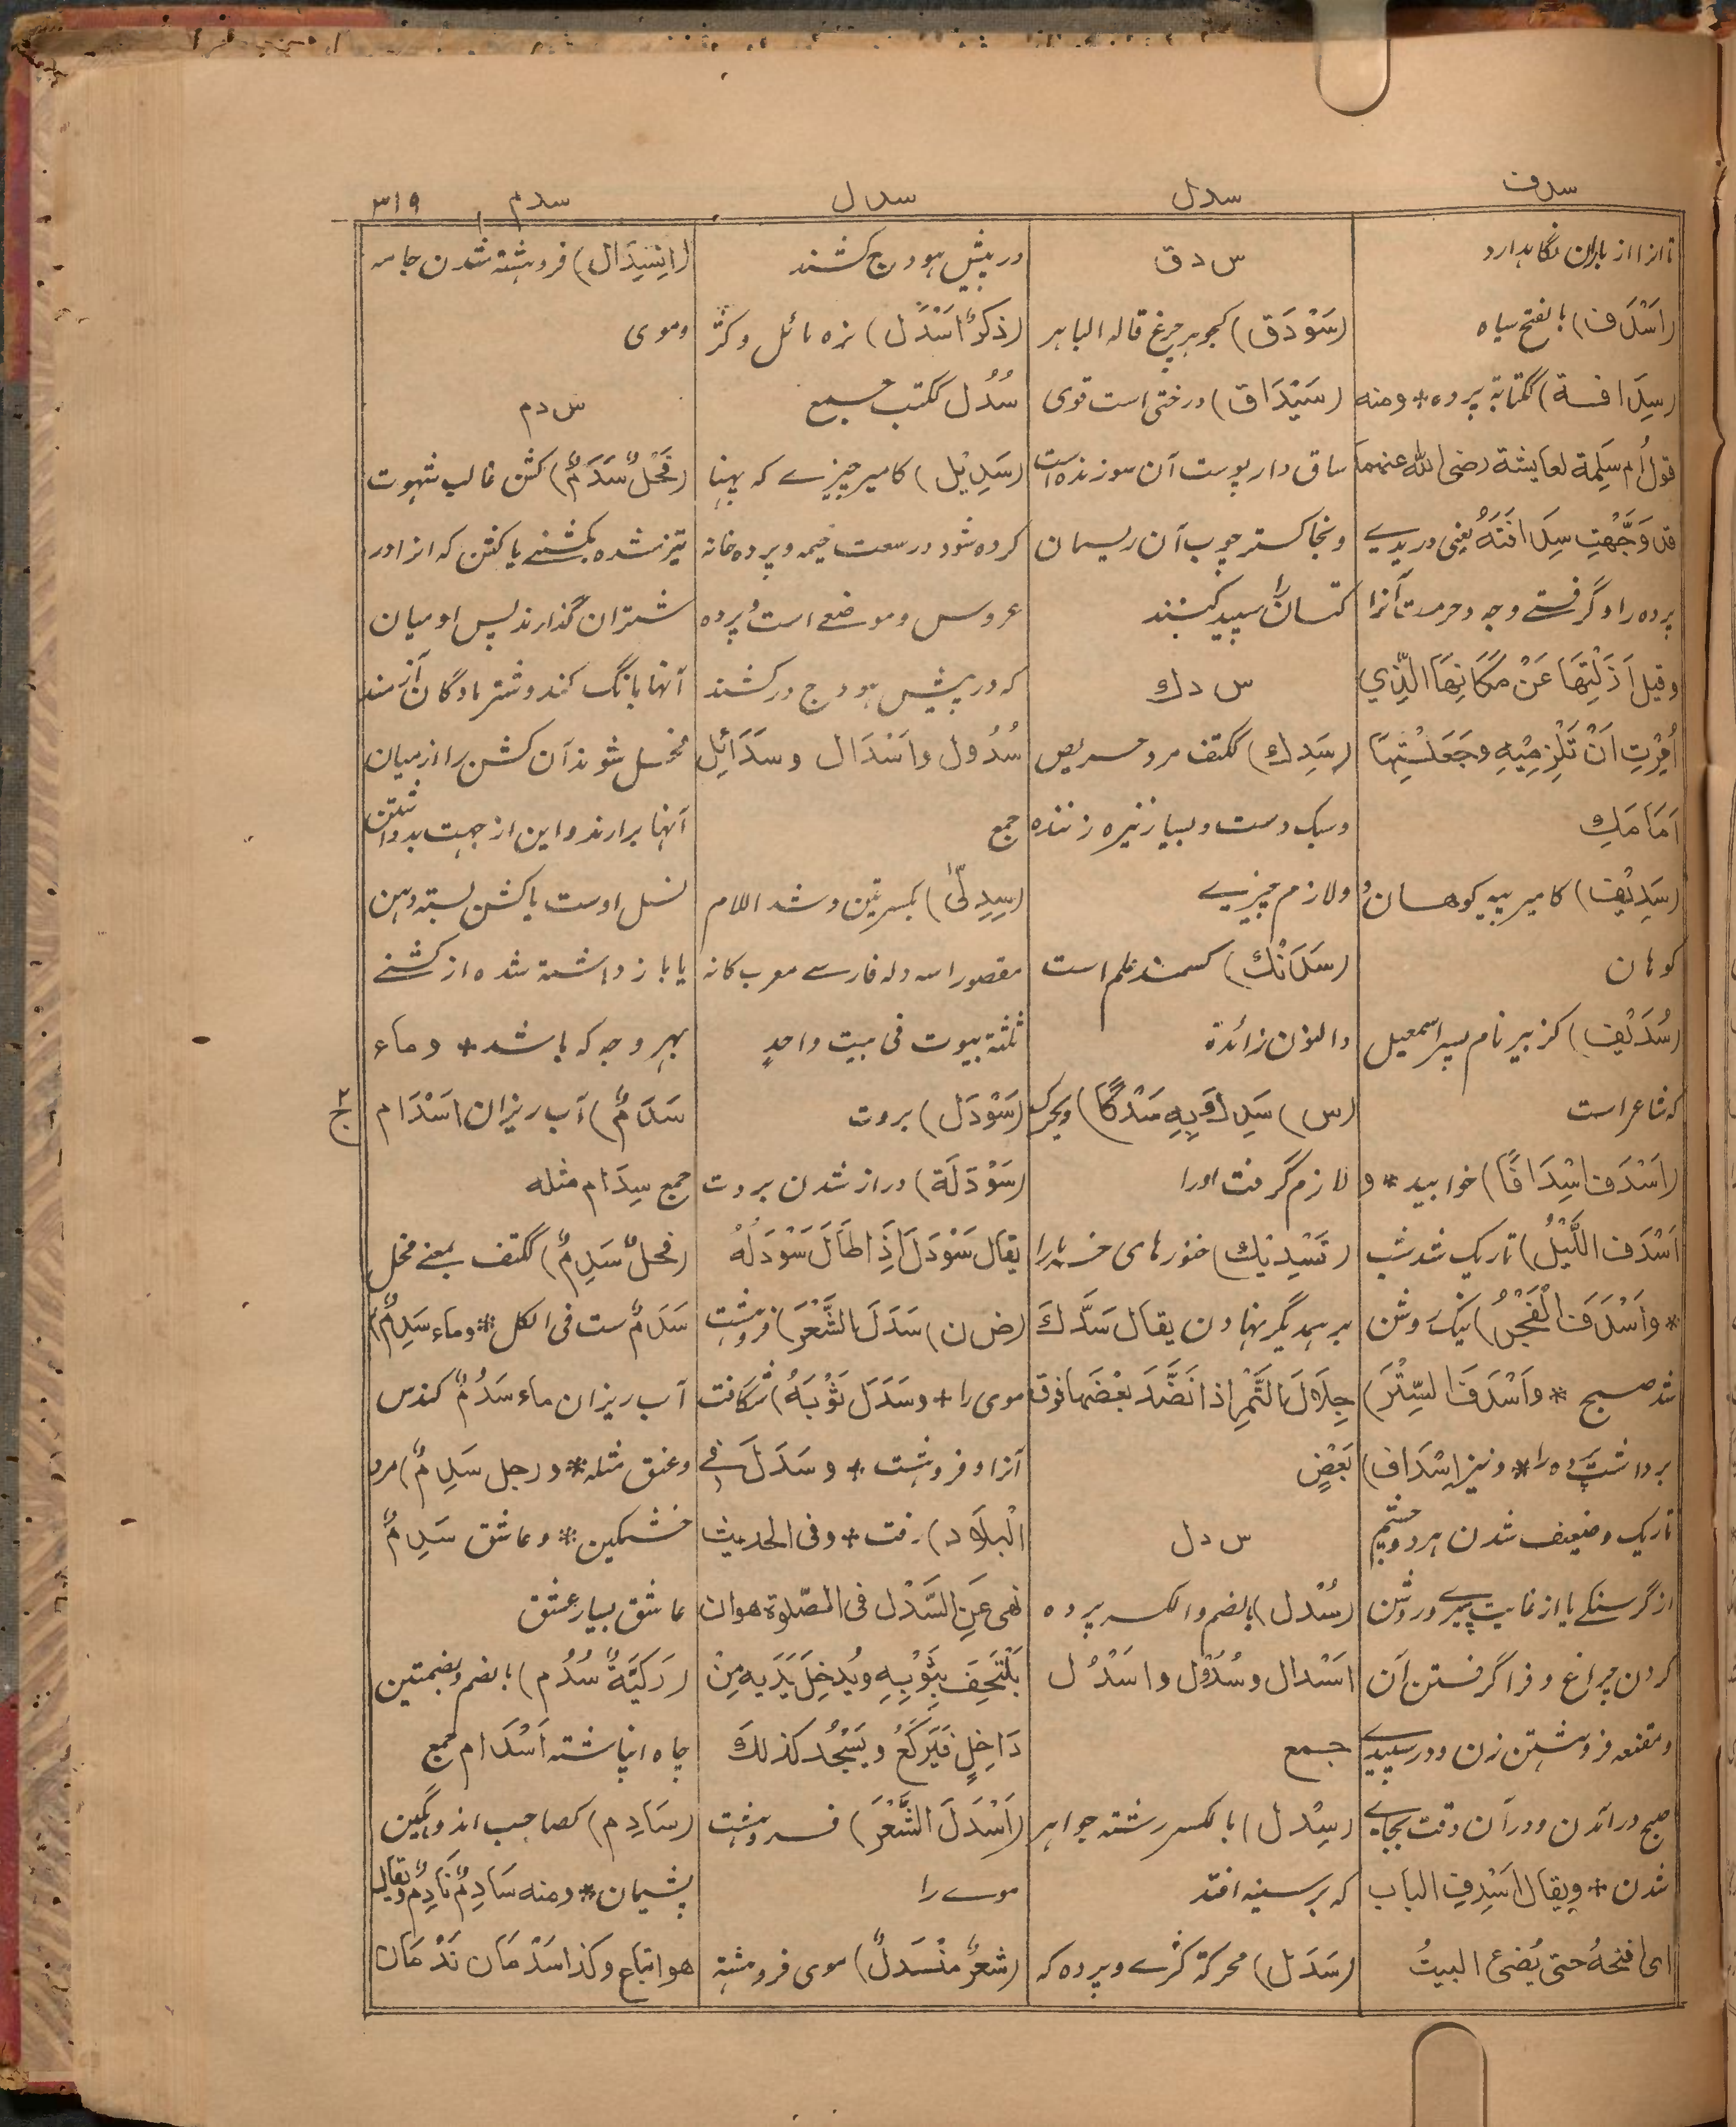 سدف
سدل
سدل
سدم
٣١٩
تا انرا از باران نگاہدارد
(اَسْدَف) بالفتح سیاہ
(سِدَافة) ککتابة پردہ * ومنه
قول أم سَلِمة لعایشة رضی الله عنهما
قد وَجَّهْتِ سِدَافَتَهُ یعنی دریدے
پردہ را و گرفتے وجہ و حرمت آنرا
وقیل اَذَلْتِهَا عَنْ مَکَانِهَا الَّذِي
اُمِرْتِ اَنْ تَلْزِمِیْهِ وجَعَلْتِهَا
اَمَامَكِ
(سَدِیْف) کامیر پیہ کوهان و
کوہان
(سُدَیْف) کزبیر نام پسر اسمعیل
کہ شاعر است
(اَسْدَفَ اِسْدَافًا) خوابید * و
اَسْدَفَ اللَّیْلُ) تاریک شد شب
* واَسْدَفَ الْفَجْرُ) نیک روشن
شد صبح * واَسْدَفَ السِّتْرَ)
برداشت پردہ را * ونیز اِسْدَاف)
تاریک وضعیف شدن ہردو چشم
از گرسنگے یا از غایت پیرے وروشن
کردن چراغ و فرا گرفتن آن
ومقنعہ فروہشتن زن و در سپیدے
صبح درآمدن و درآن وقت بجاے
شدن + ویقال اَسْدِفِ الباب
ای افتحهُ حتی یُضیٔ البیتُ
س د ق
(سَوْدَق) کجوہر چرغ قاله الباهر
(سَیْدَاق) درختی است قوی
ساق دار پوست آن سوزندہ است
وبخاکستر چوب آن ریسمان
کتان را سپید کنند
س د ك
(سَدِك) ککتف مرد حریص
وسبک دست وبسیار نیزہ زنندہ
ولازم چیزے
(سَدَانْك) کسمند علم است
والنون زائدة
(س) سَدِكَ بِهِ سَدْكًا) ویحرک
لازم گرفت اورا
(تَسْدِیْك) خنورہای خرما را
بر ہمدیگر نہادن یقال سَدَّكَ
جِلَالَ التَّمْرِ اذا نَضَّدَ بعْضَها فوق
بَعْضٍ
س د ل
(سُدْل) بالضم والکسر پردہ
اَسْدال وسُدُوْل واَسْدُل
جمع
(سِدْل) بالکسر رشتہ جواہر
کہ بر سینہ افتد
(سَدَل) محرکة کژے و پردہ کہ
در پیش ہودج کشند
(ذکرٌ اَسْدَل) نرہ مائل وکژ
سُدُل ککتب جمع
(سَدِیْل) کامیر چیزے کہ بہ پہنا
کردہ شود در سعت خیمہ و پردہ خانہ
عروس و موضعے است و پردہ
کہ در پیش ہودج در کشند
سُدُول واَسْدَال وسَدَائِل
جمع
(سِدِلّیٰ) بکسرتین وشد اللام
مقصورا سہ دلہ فارسے معرب کانہ
ثلثة بیوت فی بیت واحدٍ
(سَوْدَل) بروت
(سَوْدَلَة) دراز شدن بروت
یقال سَوْدَلَ اِذَا طَالَ سَوْدَلُهُ
(ض ن) سَدَلَ الشَّعْرَ) فروہشت
موی را + وسَدَلَ ثَوْبَهُ) شگافت
آنرا وفروہشت + وسَدَلَ فی
الْبِلَاد) رفت + وفی الحدیث
نهی عَنِ السَّدْل فی الصّلوة هو ان
یَلْتَحِفَ بِثَوْبِهِ ویُدخِلَ یَدَیه مِنْ
دَاخِلٍ فَیَرْکَعُ ویَسْجُد کذلك
(اَسْدَلَ الشَّعْرَ) فروہشت
موے را
(شَعْرٌ مُنْسَدِلٌ) موی فروہشتہ
(اِنْسِدَال) فروہشتہ شدن جامہ
وموی
س د م
(فَحْلٌ سَدَمٌ) گشن غالب شہوت
تیز شدہ بگشنے یا گشن کہ انرا در
شتران گذارند پس او میان
آنہا بانگ کند و شتر مادگان آزمند
فحل شوند آن گشن را از میان
آنہا برارند و این از جہت بد داشتن
نسل اوست یا گشن بستہ دہن
یا باز داشتہ شدہ از گشنے
بہر وجہ کہ باشد + وماء
سَدَمٌ) آب ریزان اَسْدَام
ج
جمع سِدَام مثله
(فحلٌ سَدِمٌ) ککتف بمعنے فحل
سَدَمٌ ست فی الکل * وماء سَدِمٌ)
آب ریزان ماء سَدُمٌ کندس
وعنق مثله * ورجل سَدِمٌ) مرد
خشمگین * وعاشق سَدِمٌ
عاشق بسیار عشق
(رَکِیَّةٌ سُدُم) بالضم وبضمتین
چاہ انباشتہ اَسْدَام جمع
(سَادِم) کصاحب اندوہگین
پشیمان * ومنه سَادِمٌ نَادِمٌ ویقال
هو اتباع وکذا سَدْمَان نَدْمَان